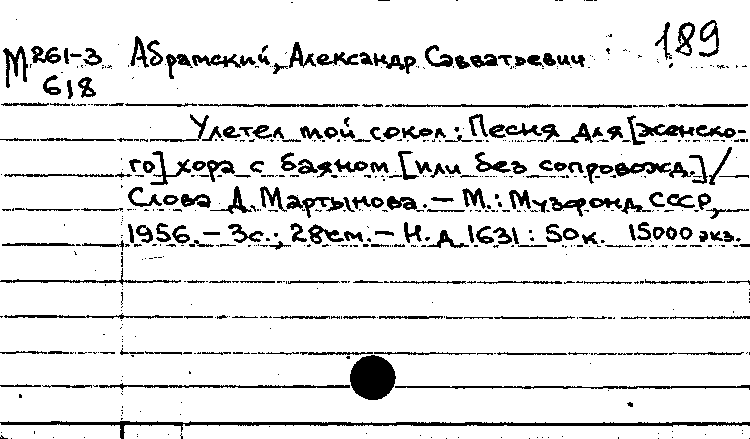 М 261-3 Абрамский, Александр Савватьевич 189
618
Улетел мой сокол: Песня для [женско-
го] хора с баяном [или без сопровожд.] /
Слова Д. Мартынова. — М.: Музфонд СССР,
1956. — 3с.; 28см. — Н.д. 1631: 50к. 15000 экз.